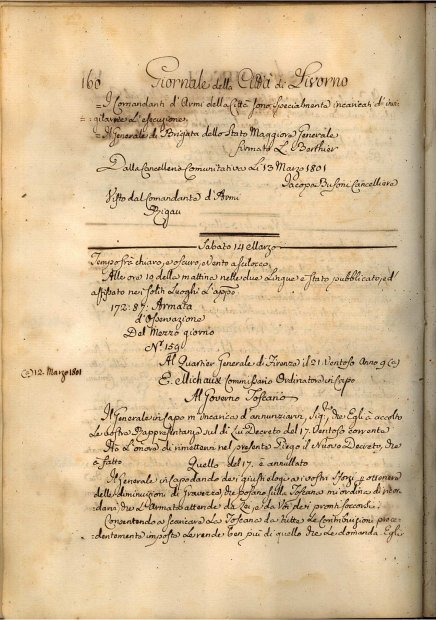 160 Giornale della Città di Livorno
= I Comandanti d'Armi della Città sono specialmente incaricati di invi=
=gilarne l'esecuzione
= Il Generale di Brigata dello Stato Maggiore Generale
Firmato L. Berthier
Dalla Cancelleria Comunitativa Li 13 Marzo 1801
Jacopo Busoni Cancelliere
Visto dal Comandante d'Armi
Brigau
Sabato 14 Marzo
Tempo frà chiaro, e oscuro, e vento a scilocco
Alle ore 19 della mattina nelle due Lingue è stato pubblicato, ed
affissato nei soliti Luoghi L'appo
172:87: Armata
d'Osservazione
Del Mezzo giorno
N.º 159
Al Quartier Generale di Firenze il 21 Ventoso Anno 9 (a)
(a) 12. Marzo 1801
E. Michaux Commissario Ordinatore in Capo
Al Governo Toscano
Il Generale in Capo m'incarica d'annunziarvi, Sig.ri che Egli à accolto
Le vostre Rappresentanze sul di Lui Decreto del 17 Ventoso corrente
Ho L'onore di rimettervi nel presente Piego il Nuovo Decreto, che
à fatto. Quello del 17. è annullato
Il Generale in Capo dando dei giusti elogi ai vostri sforzi p ottenere
delle diminuzioni di gravezze, che posano sulla Toscana mi ordina di ricor=
darvi che L'Armata attende da Voi dei pronti soccorsi.
Consentendo a scaricare La Toscana da tutte Le Contribuzioni prece=
dentemente imposte Le rende ben più di quello che Le domanda. Egli